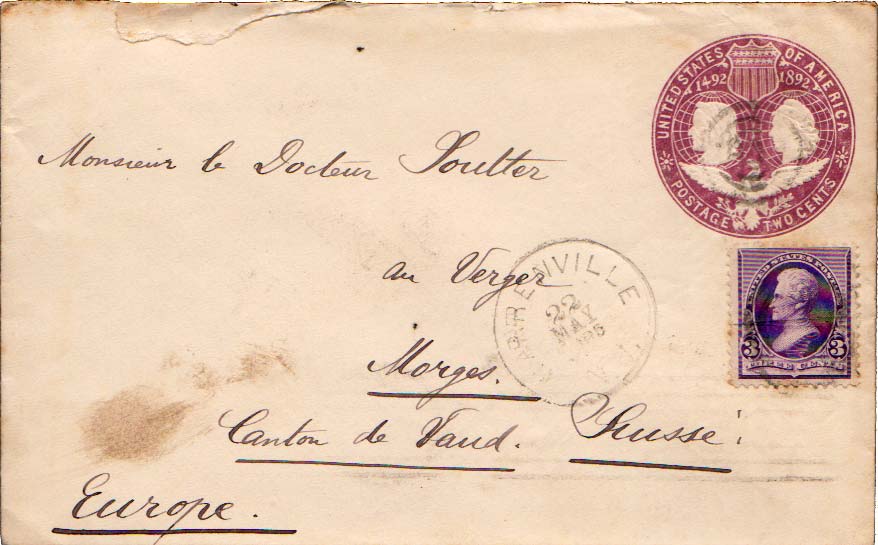 UNITED STATES OF AMERICA
1492 1892
POSTAGE TWO CENTS
Monsieur le Docteur Soutter
au Verger
RENVILLE
22
MAY
Morges.
UNITED STATES POSTAGE
3 3
THREE CENTS
Canton de Vaud. Suisse.
Europe.